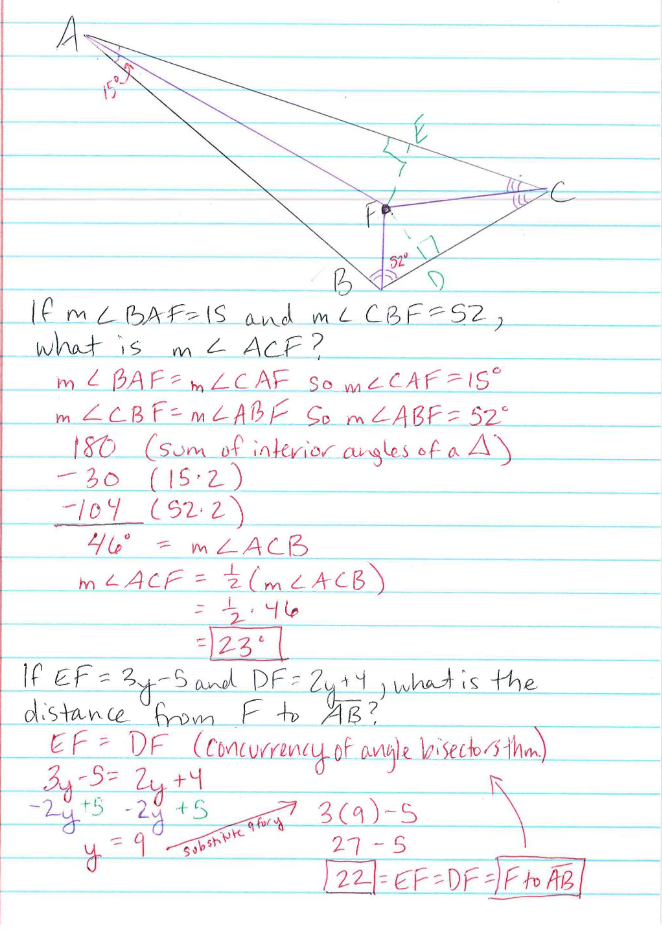 A
15°
E
C
F
52°
B
D
If m∠BAF=15 and m∠CBF=52,
what is m∠ACF?
m∠BAF=m∠CAF so m∠CAF=15°
m∠CBF=m∠ABF so m∠ABF=52°
180 (sum of interior angles of a Δ)
-30 (15·2)
-104 (52·2)
46° = m∠ACB
m∠ACF = ½(m∠ACB)
= ½·46
= 23°
If EF=3y-5 and DF=2y+4, what is the
distance from F to AB?
EF = DF (concurrency of angle bisectors thm.)
3y-5= 2y+4
-2y+5 -2y+5
y = 9 substitute 9 for y 3(9)-5
27-5
22 =EF=DF= F to AB